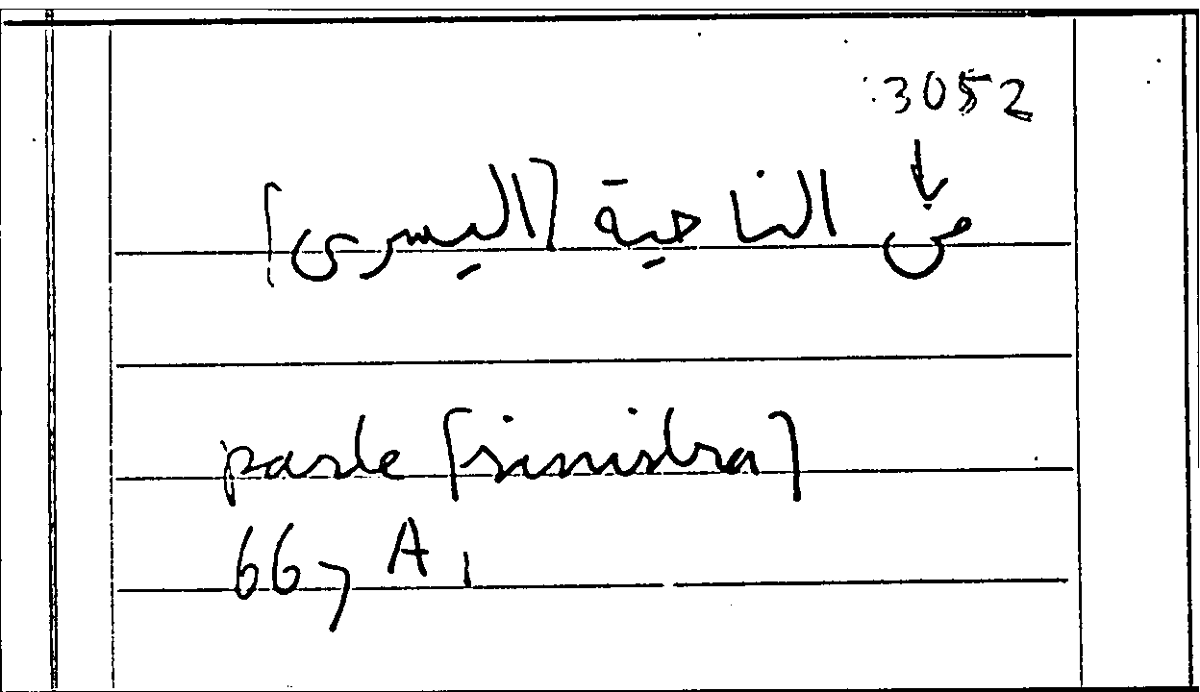 3052
↓
من الناحية [اليسرى]
parte [sinistra]
667 A 1